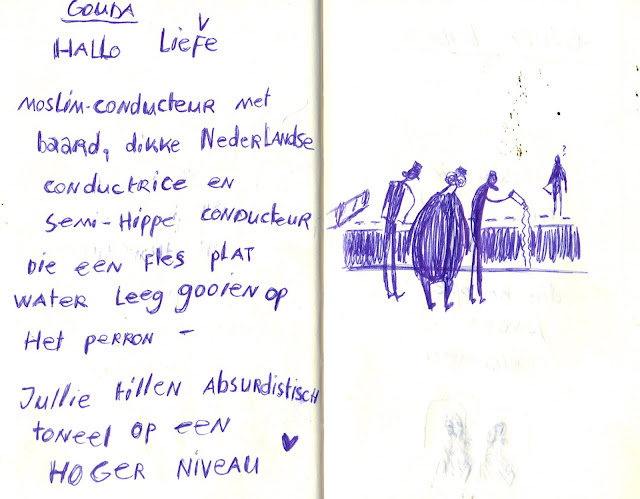 GOUDA
HALLO LIEFVE
MOSLIM-CONDUCTEUR MET
BAARD, DIKKE NEDERLANDSE
CONDUCTRICE EN
SEMI-HIPPE CONDUCTEUR
DIE EEN FLES PLAT
WATER LEEG GOOIEN OP
HET PERRON -
JULLIE TILLEN ABSURDISTISCH
TONEEL OP EEN
HOGER NIVEAU ♥
?